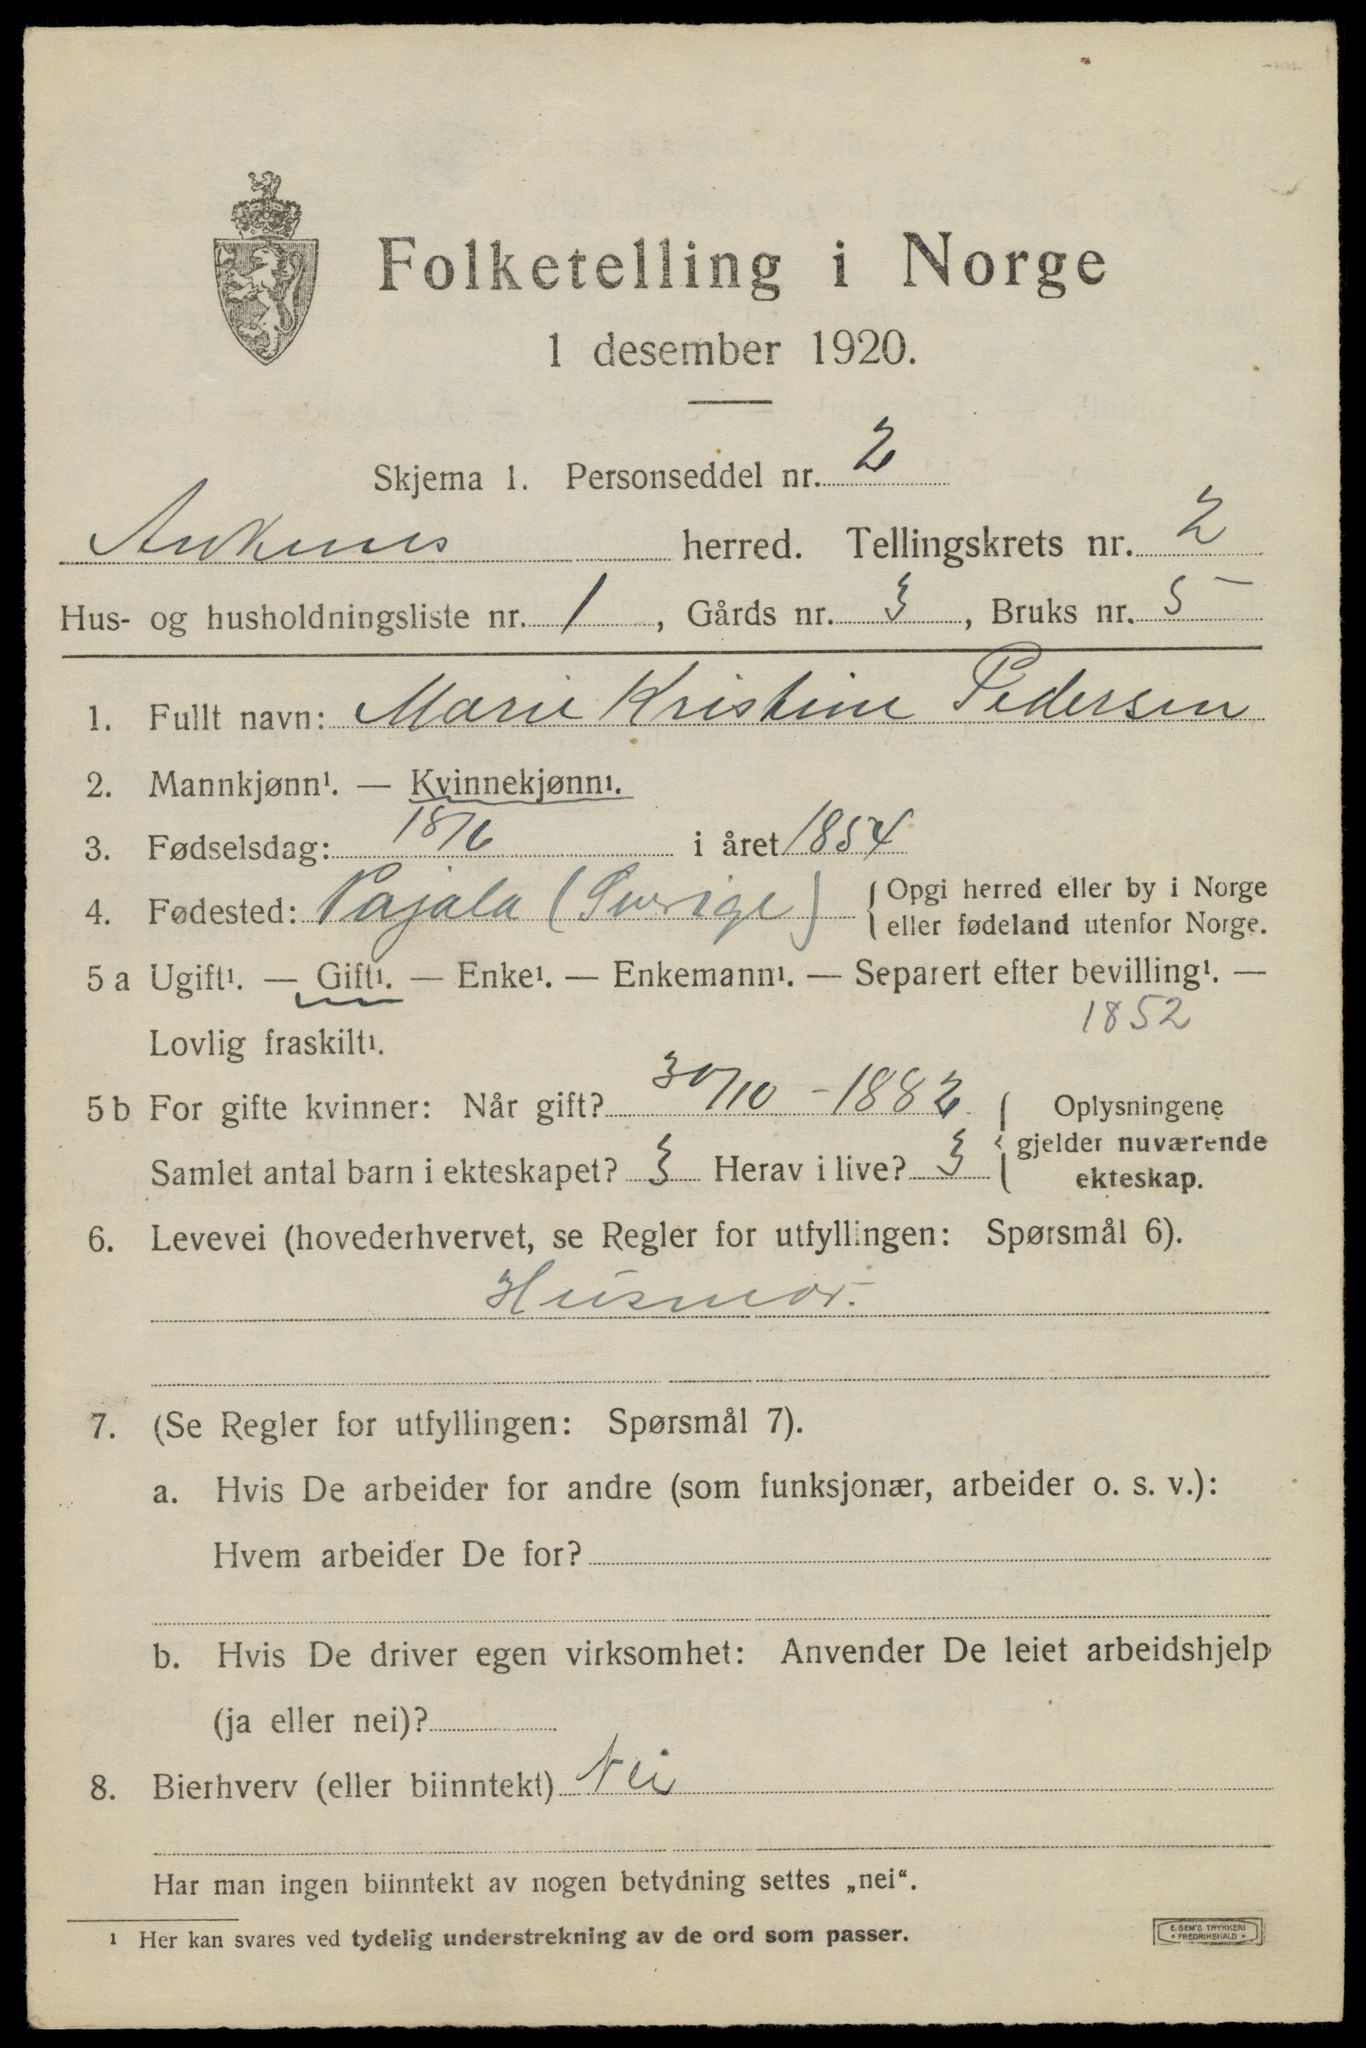 Folketelling i Norge
1 desember 1920.
Skjema 1. Personseddel nr. 2
Ankenes herred. Tellingskrets nr. 2
Hus- og husholdningsliste nr. 1, Gårds nr. 3, Bruks nr. 5
1. Fullt navn: Marie Kristine Pedersen
2. Mannkjønn¹. — Kvinnekjønn¹.
3. Fødselsdag: 18/6 i året 1854
4. Fødested: Pajala (Sverige) { Opgi herred eller by i Norge
eller fødeland utenfor Norge.
5 a Ugift¹. — Gift¹. — Enke¹. — Enkemann¹. — Separert efter bevilling¹. —
Lovlig fraskilt¹. 1852
5 b For gifte kvinner: Når gift? 30/10 - 1882 { Oplysningene
gjelder nuværende
Samlet antal barn i ekteskapet? 3 Herav i live? 3 ekteskap.
6. Levevei (hovederhvervet, se Regler for utfyllingen: Spørsmål 6).
Husmor.
7. (Se Regler for utfyllingen: Spørsmål 7).
a. Hvis De arbeider for andre (som funksjonær, arbeider o. s. v.):
Hvem arbeider De for?
b. Hvis De driver egen virksomhet: Anvender De leiet arbeidshjelp
(ja eller nei)?
8. Bierhverv (eller biinntekt) Nei
Har man ingen biinntekt av nogen betydning settes „nei“.
¹ Her kan svares ved tydelig understrekning av de ord som passer.
E. SEM'S TRYKKERI
* FREDRIKSHALD *